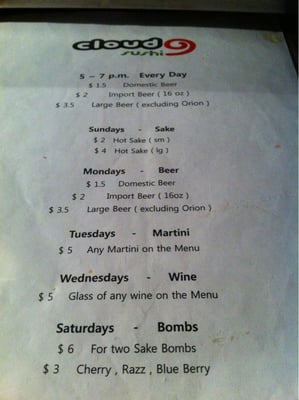 cloud 9
sushi
5 - 7 p.m. Every Day
$ 1.5 Domestic Beer
$ 2 Import Beer ( 16 oz )
$ 3.5 Large Beer ( excluding Orion )
Sundays - Sake
$ 2 Hot Sake ( sm )
$ 4 Hot Sake ( lg )
Mondays - Beer
$ 1.5 Domestic Beer
$ 2 Import Beer ( 16oz )
$ 3.5 Large Beer ( excluding Orion )
Tuesdays - Martini
$ 5 Any Martini on the Menu
Wednesdays - Wine
$ 5 Glass of any wine on the Menu
Saturdays - Bombs
$ 6 For two Sake Bombs
$ 3 Cherry , Razz , Blue Berry